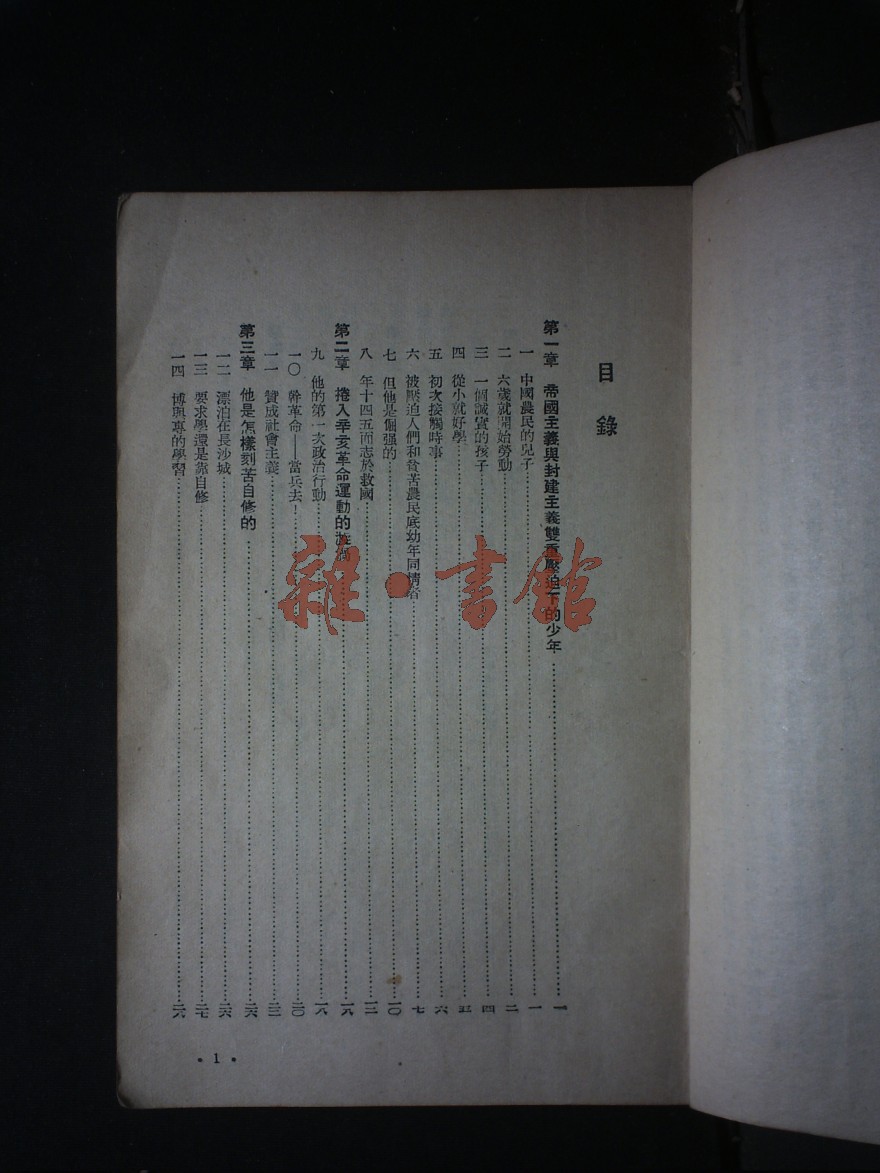 目錄
第一章 帝國主義與封建主義雙重壓迫下的少年 一
一 中國農民的兒子 一
二 六歲就開始勞動 二
三 一個誠實的孩子 四
四 從小就好學 五
五 初次接觸時事 六
六 被壓迫人們和貧苦農民底幼年同情者 七
七 但他是倔强的 一〇
八 年十四五而志於救國 一三
第二章 捲入辛亥革命運動的漩渦
九 他的第一次政治行動 一八
一〇 幹革命——當兵去! 二〇
一一 贊成社會主義
第三章 他是怎樣刻苦自修的 二六
一二 漂泊在長沙城 二六
一三 要求學還是靠自修 二七
一四 博與專的學習
• 1 •
雜·書館